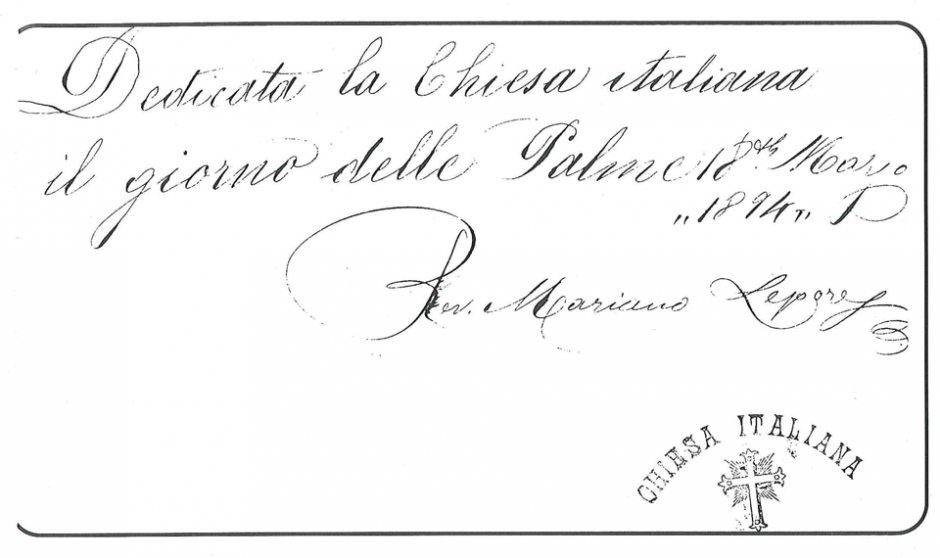 Dedicata la Chiesa italiana
il giorno delle Palme 18th Marzo
"1894"
Rev. Mariano Lepore
CHIESA ITALIANA